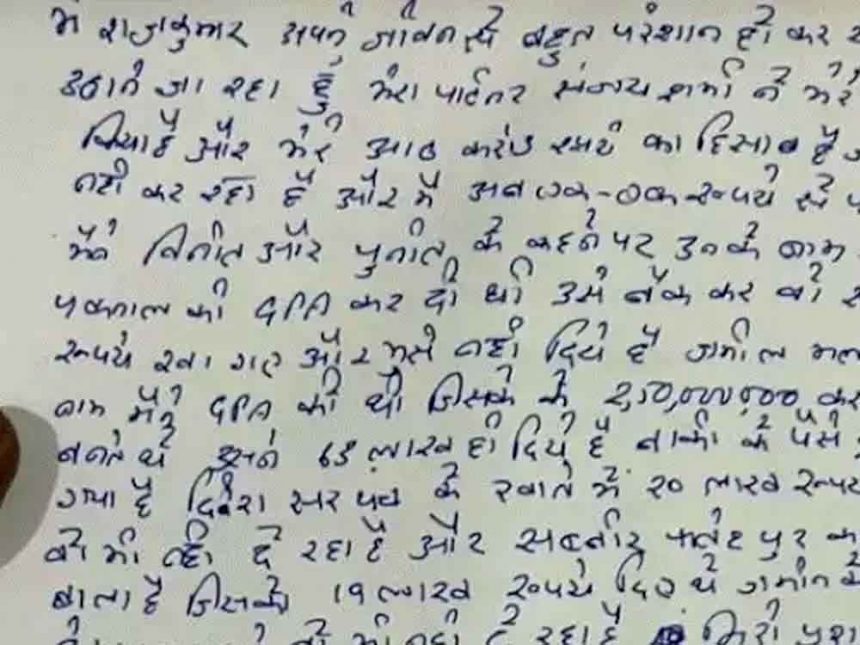 मैं राजकुमार अपने जीवन से बहुत परेशान हो कर
उठाने जा रहा हूँ मेरा पार्टनर संजय शर्मा ने मेरे
किया है और मेरे आठ करोड़ रूपये का हिसाब है
नही कर रहा है और मैं अब एक-एक रूपये से
मैंने विनीत और पुनीत के कहने पर उनके नाम
मकान की GPA कर दी थी उसे बैंक कर वो
रूपये खा गए और मुझे नही दिये है जमील
नाम मैंने GPA की थी जिसके के 2,50,00,000 कर
बनते थे उसने 65 लाख ही दिये है बाकी के पैसे
गया है सरपंच के खाते में 20 लाख रूपये
वो भी नही दे रहा है और फतेहपुर का
वाला है जिसको 19 लाख रूपये दिए थे जमीन के
वो भी नही दे रहा है मेरी